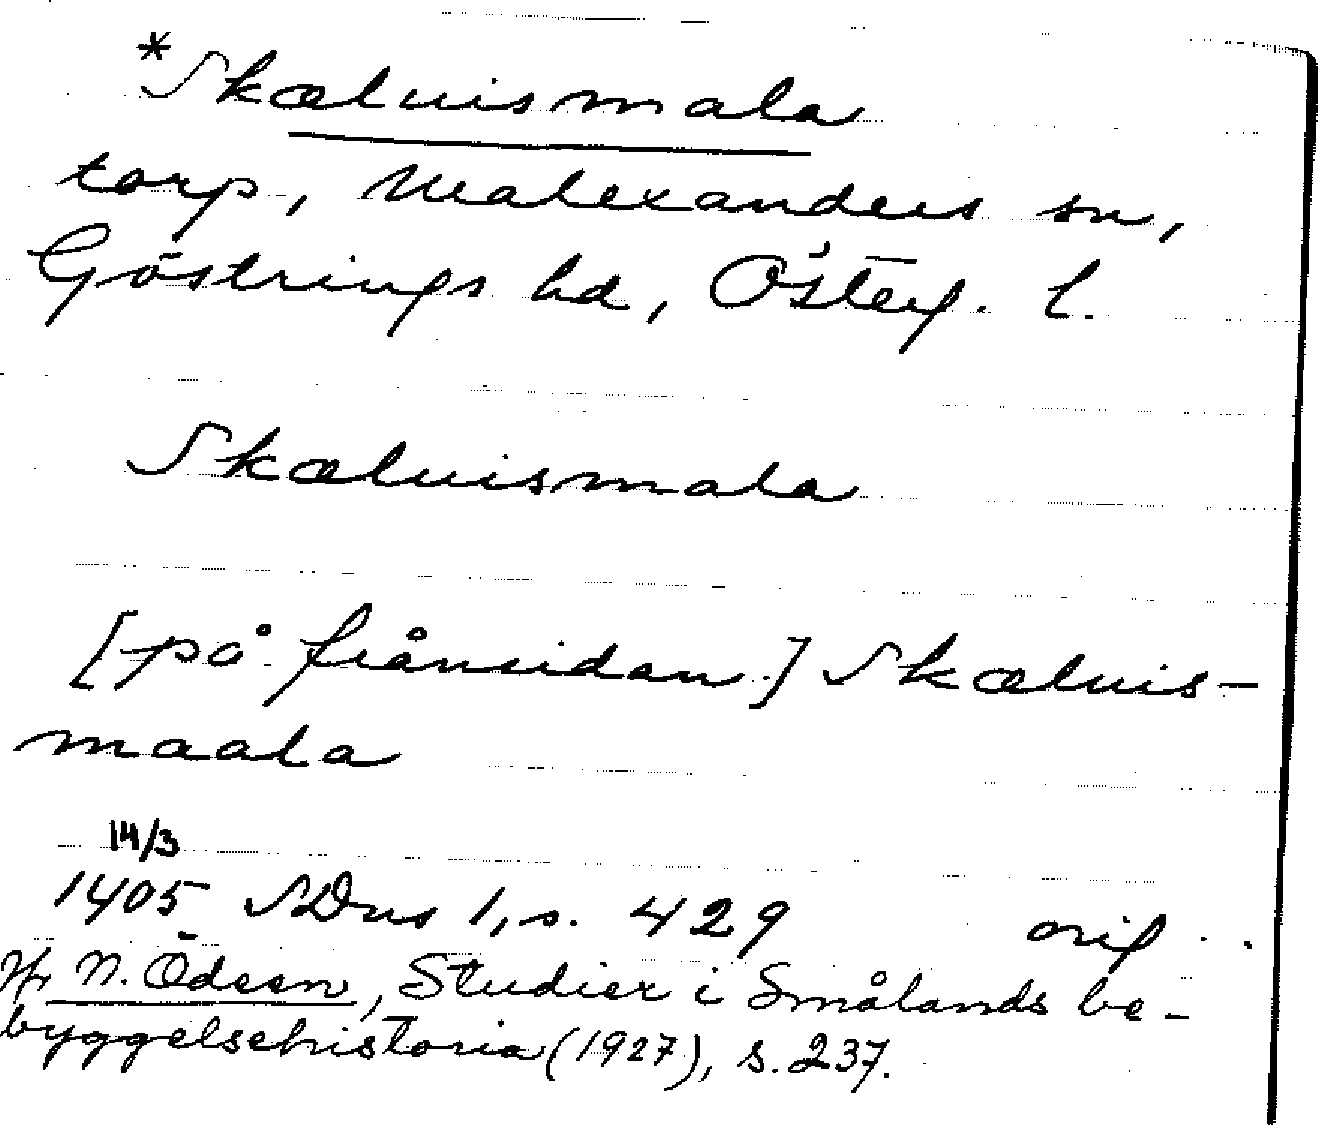 *Skæluismala
torp, Malexanders sn,
Göstrings hd, Österg. l.
Skæluismala
[på frånsidan] Skæluis-
maala
14/3
1405 SDns 1, s. 429 orig.
Jfr N. Ödeen, Studier i Smålands be-
byggelsehistoria (1927), s. 237.